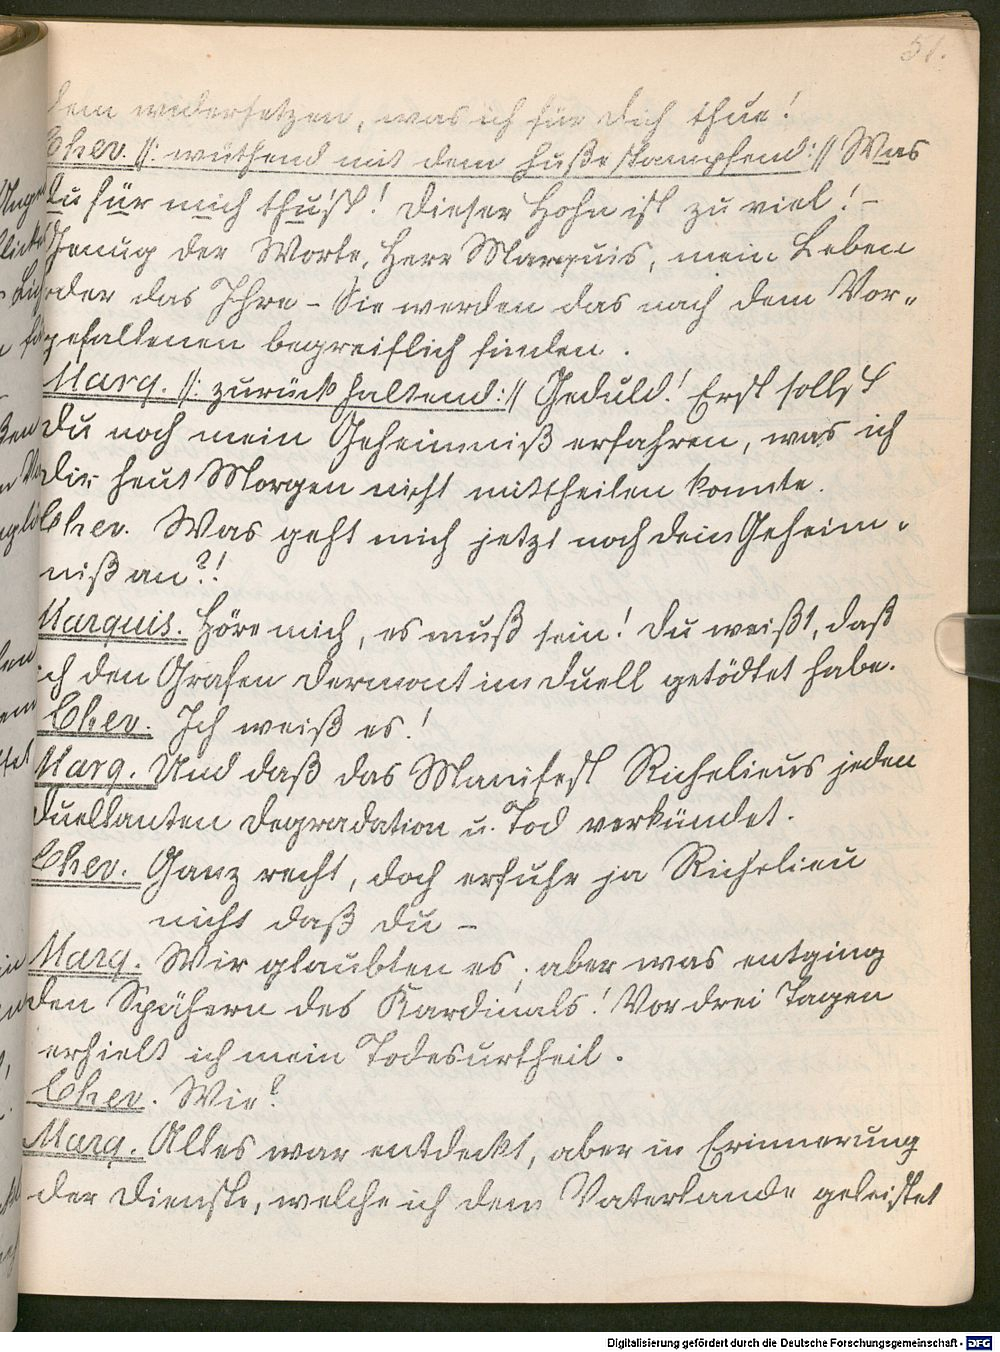 51.
dem widersetzen, was ich für dich thue!
Chev. //: wüthend mit dem Fuße stampfend :// Was
du für mich thu'st! dieser Hohn ist zu viel! –
Genug der Worte, Herr Marquis, mein Leben
oder das Ihre – Sie werden das nach dem Vor-
gefallenen begreiflich finden.
Marq. //: zurückhaltend :// Geduld! Erst sollst
du noch mein Geheimniß erfahren, was ich
dir heut Morgen nicht mittheilen konnte.
Chev. Was geht mich jetzt noch dein Geheim-
niß an?!
Marquis. Höre mich, es muß sein! du weißt, daß
ich den Grafen Dermont im Duell getödtet habe.
Chev. Ich weiß es!
Marq. Und daß das Manifest Richelieus jeden
Duellanten Degradation u. Tod verkündet.
Chev. Ganz recht, doch erfuhr ja Richelieu
nicht daß du –
Marq. Wir glaubten es; aber was entging
den Spähern des Kardinals! Vor drei Tagen
erhielt ich mein Todesurtheil.
Chev. Wie?
Marq. Alles war entdeckt, aber in Erinnerung
der Dienste, welche ich dem Vaterlande geleistet
Digitalisierung gefördert durch die Deutsche Forschungsgemeinschaft - DFG